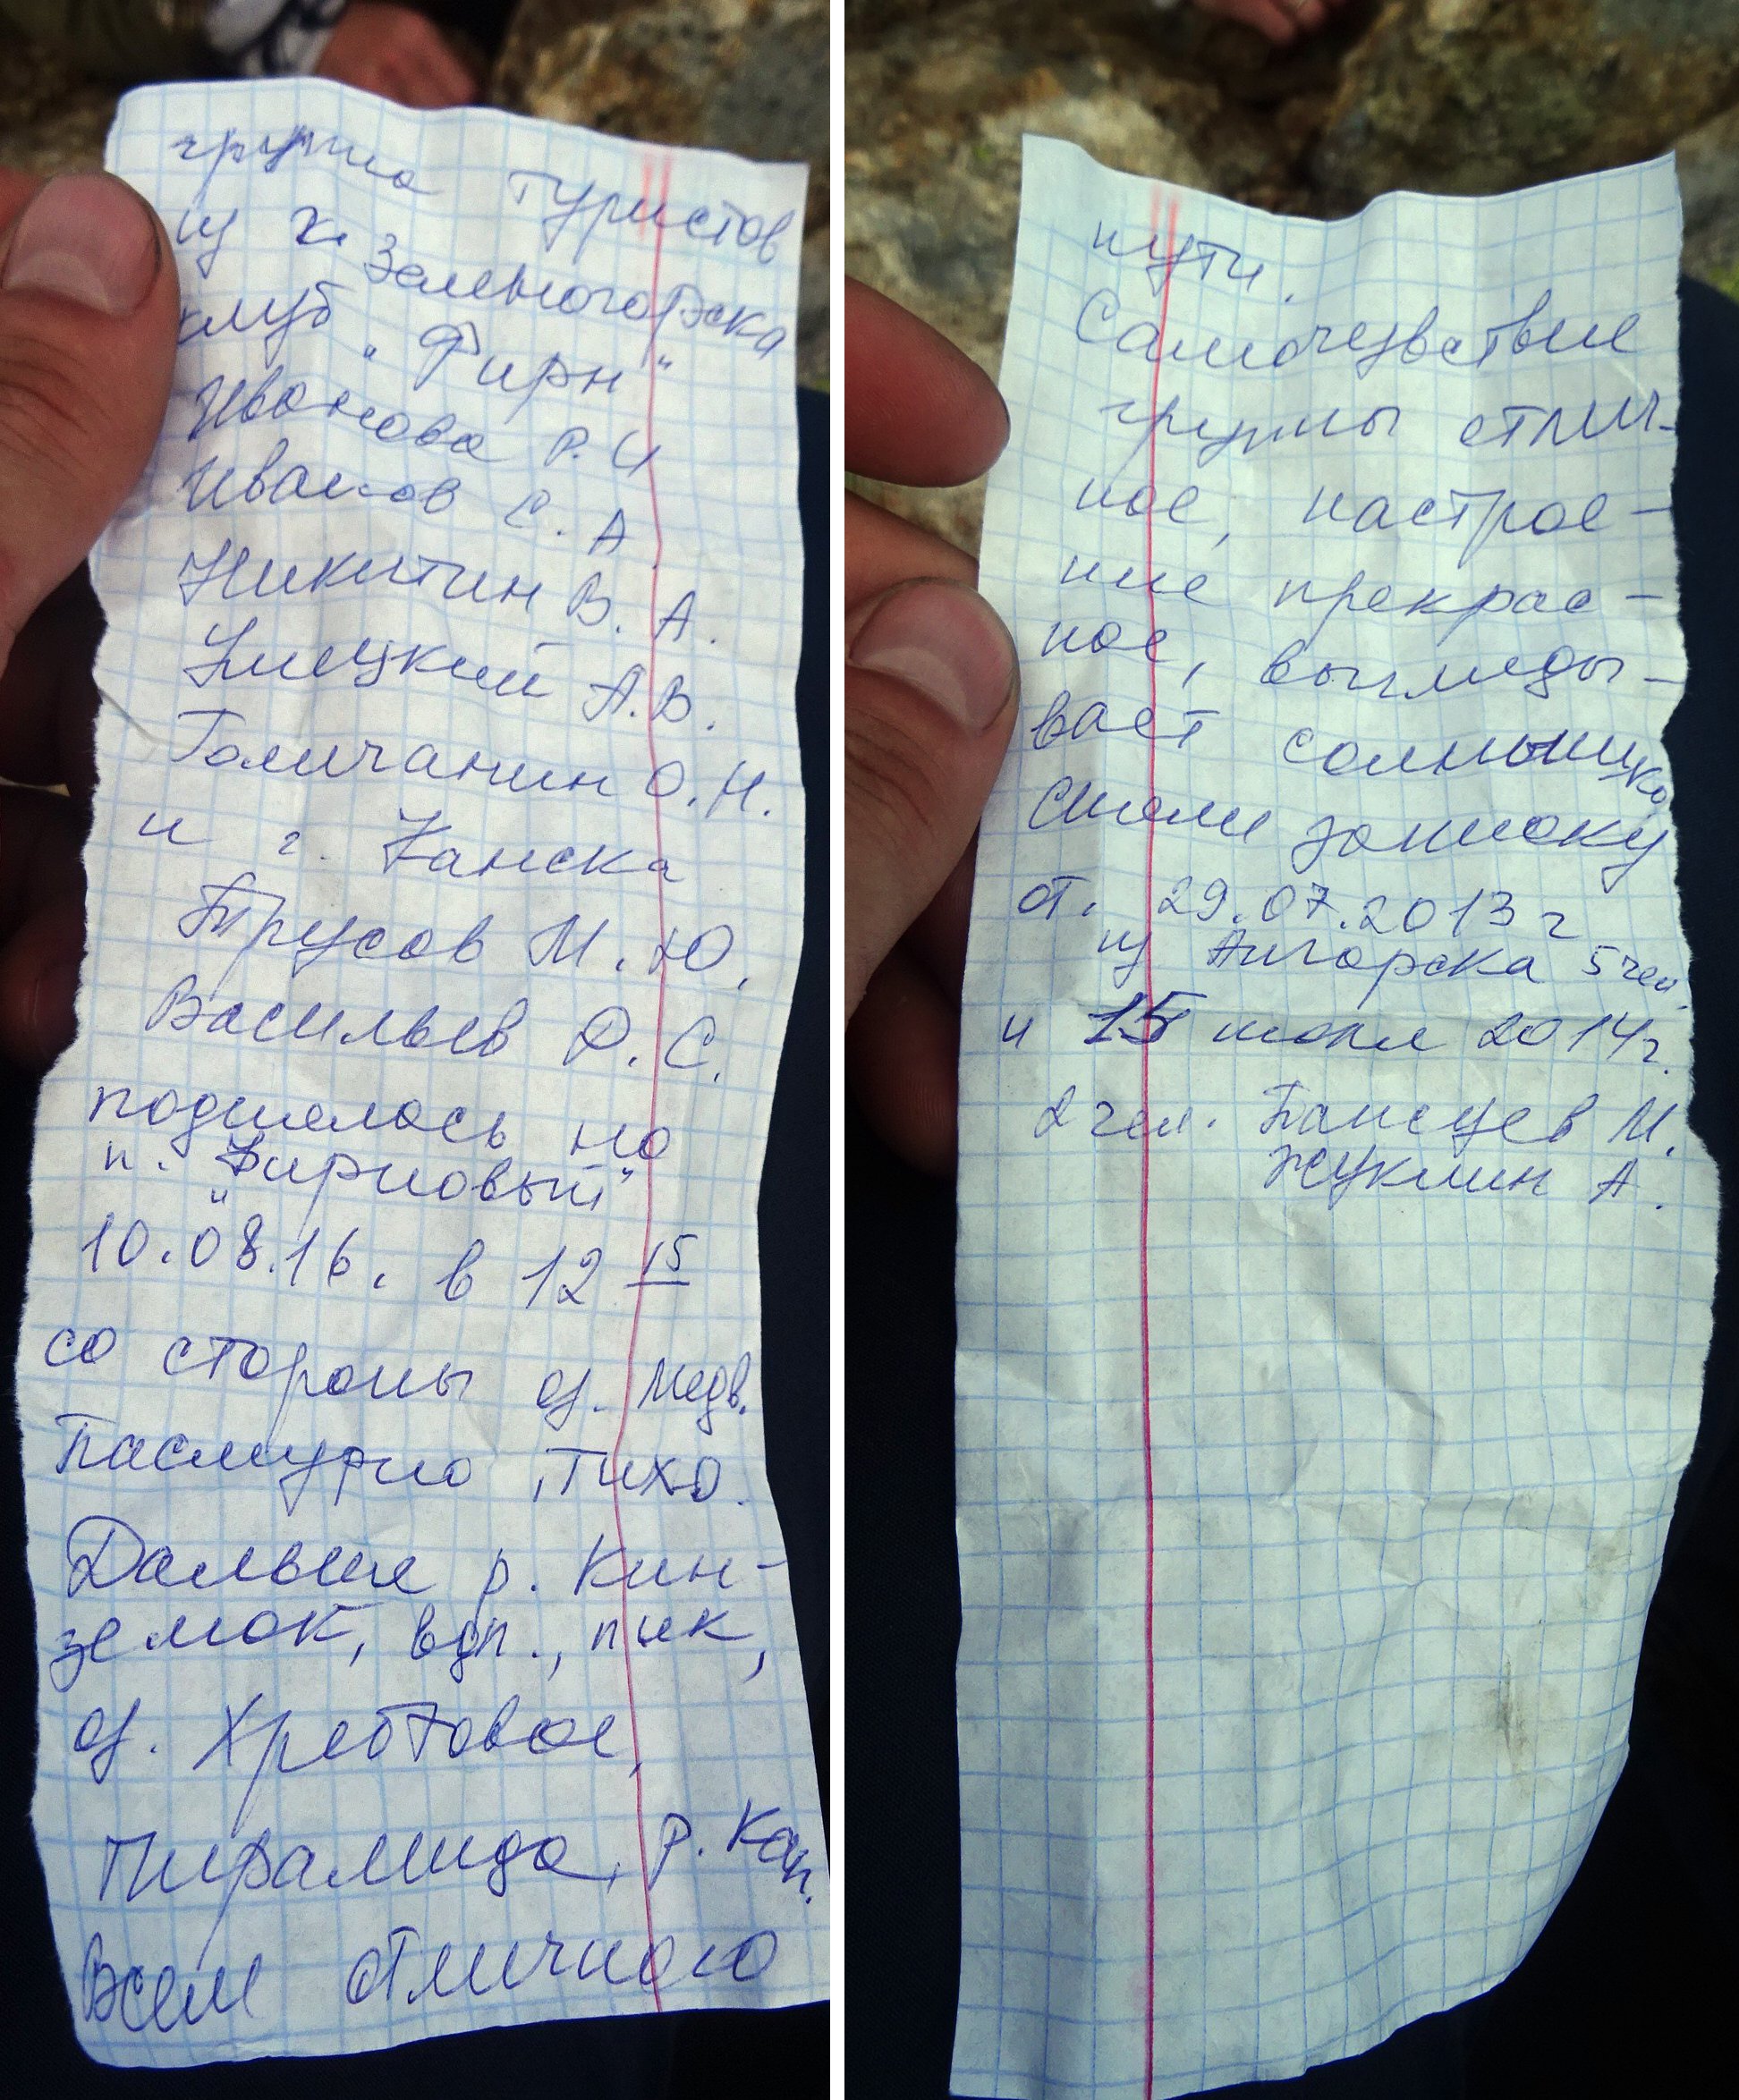 группа туристов
из г. Зеленогорска
клуб "Фирн"
Иванова Р. И
Иванов С. А.
Никитин В. А.
Улецкий А. В.
Галичанин О. Н.
и г. Канска
Трусов М. Ю.
Васильев Д. С.
поднялась на
п. "Фирновый"
10.08.16. в 12 15
со стороны оз. Медв.
Пасмурно, тихо.
Дальше р. Кин-
земок, вдп., пик,
оз. Хребтовое,
Пирамида, р. Кан.
Всем отличного
пути.
Самочувствие
группы отлич-
ное, настрое-
ние прекрас-
ное, выгляды-
вает солнышко
Сняли записку
от. 29.07.2013 г
из Ангарска 5 чел.
и 15 июля 2014г.
2 чел. М.
Жуклин А.